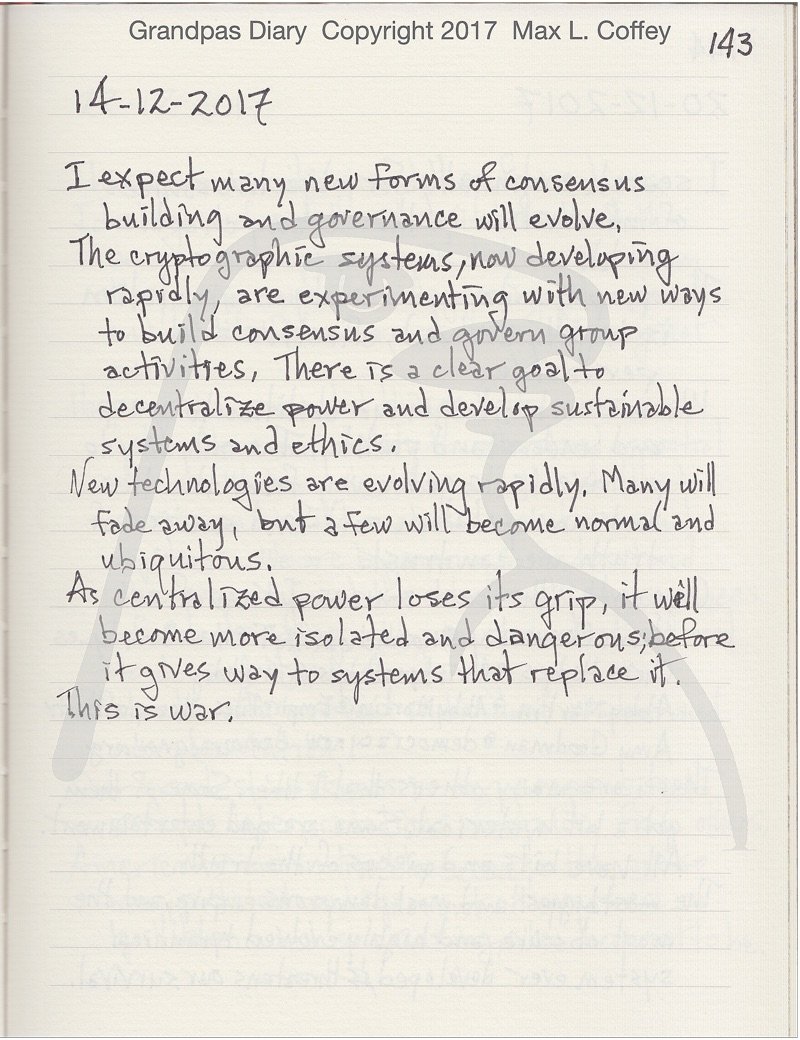 Grandpas Diary Copyright 2017 Max L. Coffey
143
14-12-2017
I expect many new forms of consensus
building and governance will evolve.
The cryptographic systems, now developing
rapidly, are experimenting with new ways
to build consensus and govern group
activities. There is a clear goal to
decentralize power and develop sustainable
systems and ethics.
New technologies are evolving rapidly. Many will
fade away, but a few will become normal and
ubiquitous.
As centralized power loses its grip, it will
become more isolated and dangerous; before
it gives way to systems that replace it.
This is war.